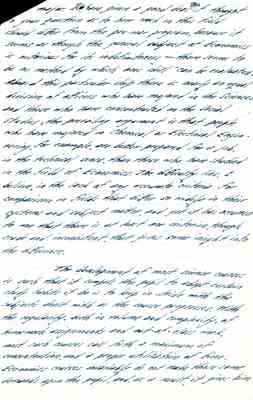 major. I have given a good deal of thought
to your question as to how much in this field
should differ from the pre-war program, because it
seems as though the general subject of Economics
is notorious for its indefiniteness — there seems to
be no method by which one can be evaluated.
about this particular thing there is nearly an equal
division of opinion who have majored in the Sciences
and those who have concentrated in the Social
Studies, the prevailing argument is that people
who have majored in Chemical or Electrical Engin-
eering, for example, are better prepared for a job
in the technical sense, than those who have studied
in the field of Economics. The difficulty lies, I
believe, in the lack of any accurate criteria for
comparison in fields that differ so widely in their
systems and subject matter, and yet it has occurred
to me that there is at least one criterion, though
crude and inconsistent, that gives some insight into
the difference.
The development of most science courses
is such that it compels the pupil to adopt certain
study habits if he is to keep in stride with the
subjects dealt with as the course progresses. With
the regularity, both in volume and complexity, of
homework assignments and out-of-class work,
most such courses call forth a maximum of
concentration and a proper utilization of time.
Economics courses invariably do not make these same
demands upon the pupil, and as a result, it gives him